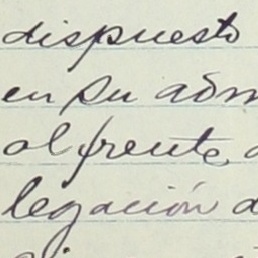 dispuesto
en su adm
al frente
legación d